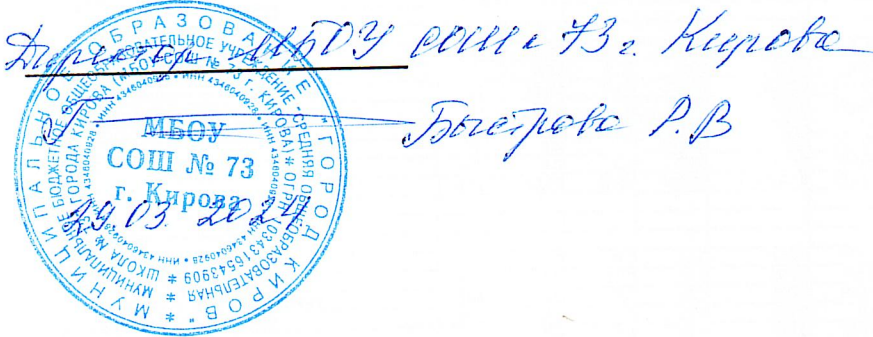 Директор МБОУ СОШ № 73 г. Кирова
Быстрова Р.В
29.03.2024
МБОУ
СОШ № 73
г. Кирова
МУНИЦИПАЛЬНОЕ ОБРАЗОВАНИЕ "ГОРОД КИРОВ"
МУНИЦИПАЛЬНОЕ БЮДЖЕТНОЕ ОБЩЕОБРАЗОВАТЕЛЬНОЕ УЧРЕЖДЕНИЕ "СРЕДНЯЯ ОБЩЕОБРАЗОВАТЕЛЬНАЯ
ШКОЛА № 73" ГОРОДА КИРОВА (МБОУ СОШ № 73 Г. КИРОВА) * ОГРН 1034316543909
ИНН 4346040928